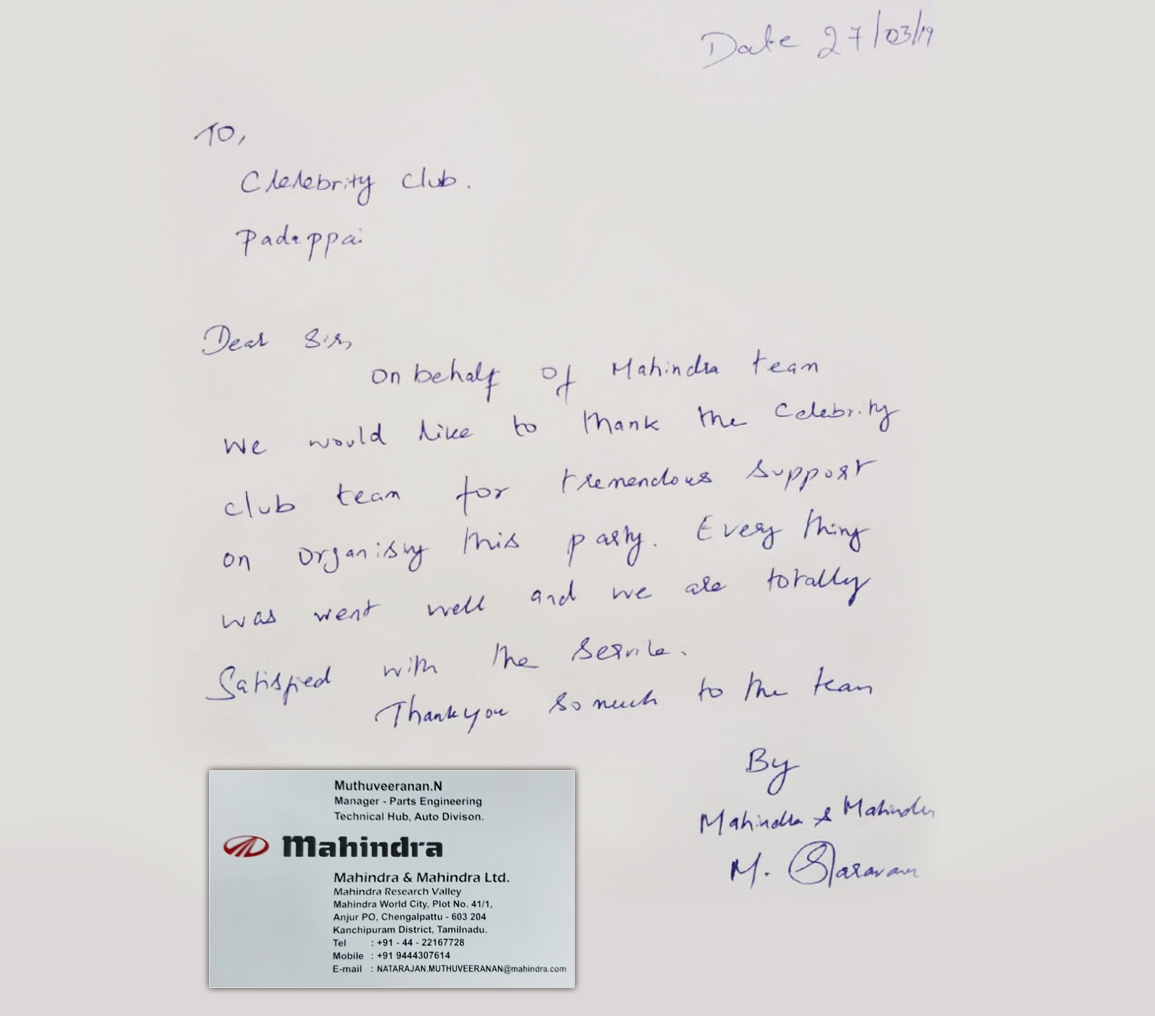 Date 27/03/19
To,
Clelebrity club.
Padappai
Dear Sir,
On behalf of Mahindra team
We would like to thank the Celebrity
club team for tremendous support
on organising this party. Every thing
was went well and we are totally
Satisfied with the service.
Thankyou so much to the team
By
Mahindra & Mahindra
M. Saravanan
Muthuveeranan.N
Manager - Parts Engineering
Technical Hub, Auto Divison.
Mahindra
Mahindra & Mahindra Ltd.
Mahindra Research Valley
Mahindra World City, Plot No. 41/1,
Anjur PO, Chengalpattu - 603 204
Kanchipuram District, Tamilnadu.
Tel : +91 - 44 - 22167728
Mobile : +91 9444307614
E-mail : NATARAJAN.MUTHUVEERANAN@mahindra.com